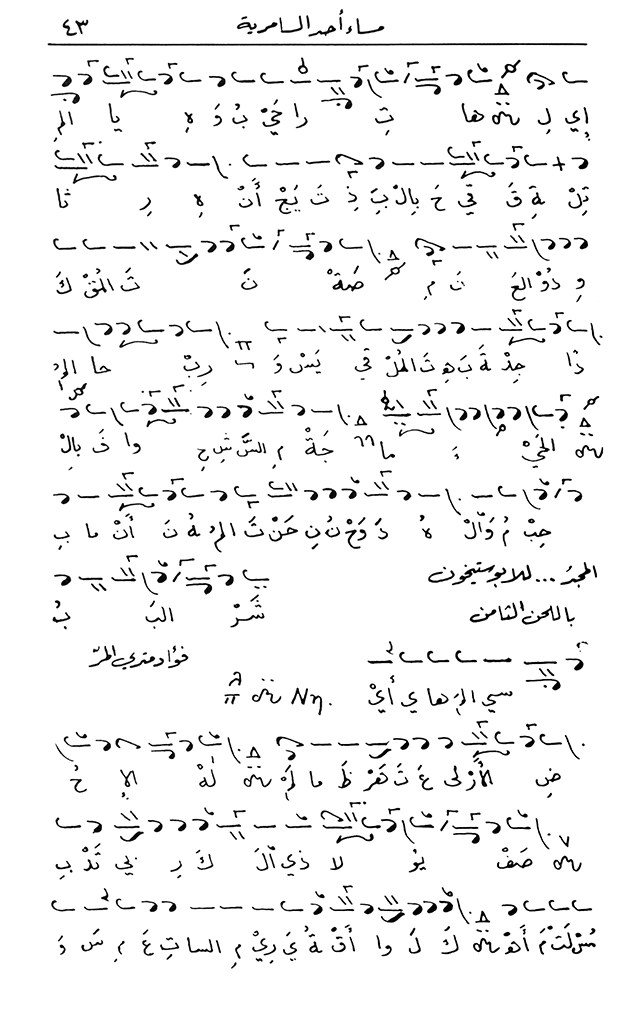 مساء أحد السامرية ٤٣
إِي لِ ها تِ را خَيْ بُ دَ هِ يا المِ
تِلْ ةِ قَ قي حَ بِالْ بَ ذِ تَ يَجْ أَنْ هِ رِ ثا
وِ ذُوْ العَ نَ مِ ضَةْ نَ ثَ المُقْ كَ
ذا جِذْ ةَ بَ هِ ثَ المُلْ قي يَسْ وَ رِبْ حا المُ
الحَيْ ءَ ما جَةْ مِ السَّ شِ حِ وا قَ بِالْ
حِبْ مُ وَالْ هُ دَ وَحْ نُ نِ حَنْ ثَ المُ هُ نَ أَنْ ما بِ
المجدُ ... للابوستيخون شَرْ البَ بُ
باللحن الثامن
فؤاد متري المرّ
سي المَ ها ي أَيْ Νη.
ضِ الأُرْ لى عَ ثَ هَرْ ظَ ما لَمْ لَهْ الإِ خُ
صَفْ يُوْ لا ذي أَلَ كَ رِ بي تَدْ بِ
سُرْ لَتْ مَ أَهْ كَ لَ وا أَقْ ةُ يَ رِيْ مِ السا تِ عَ مِ سَ دَ